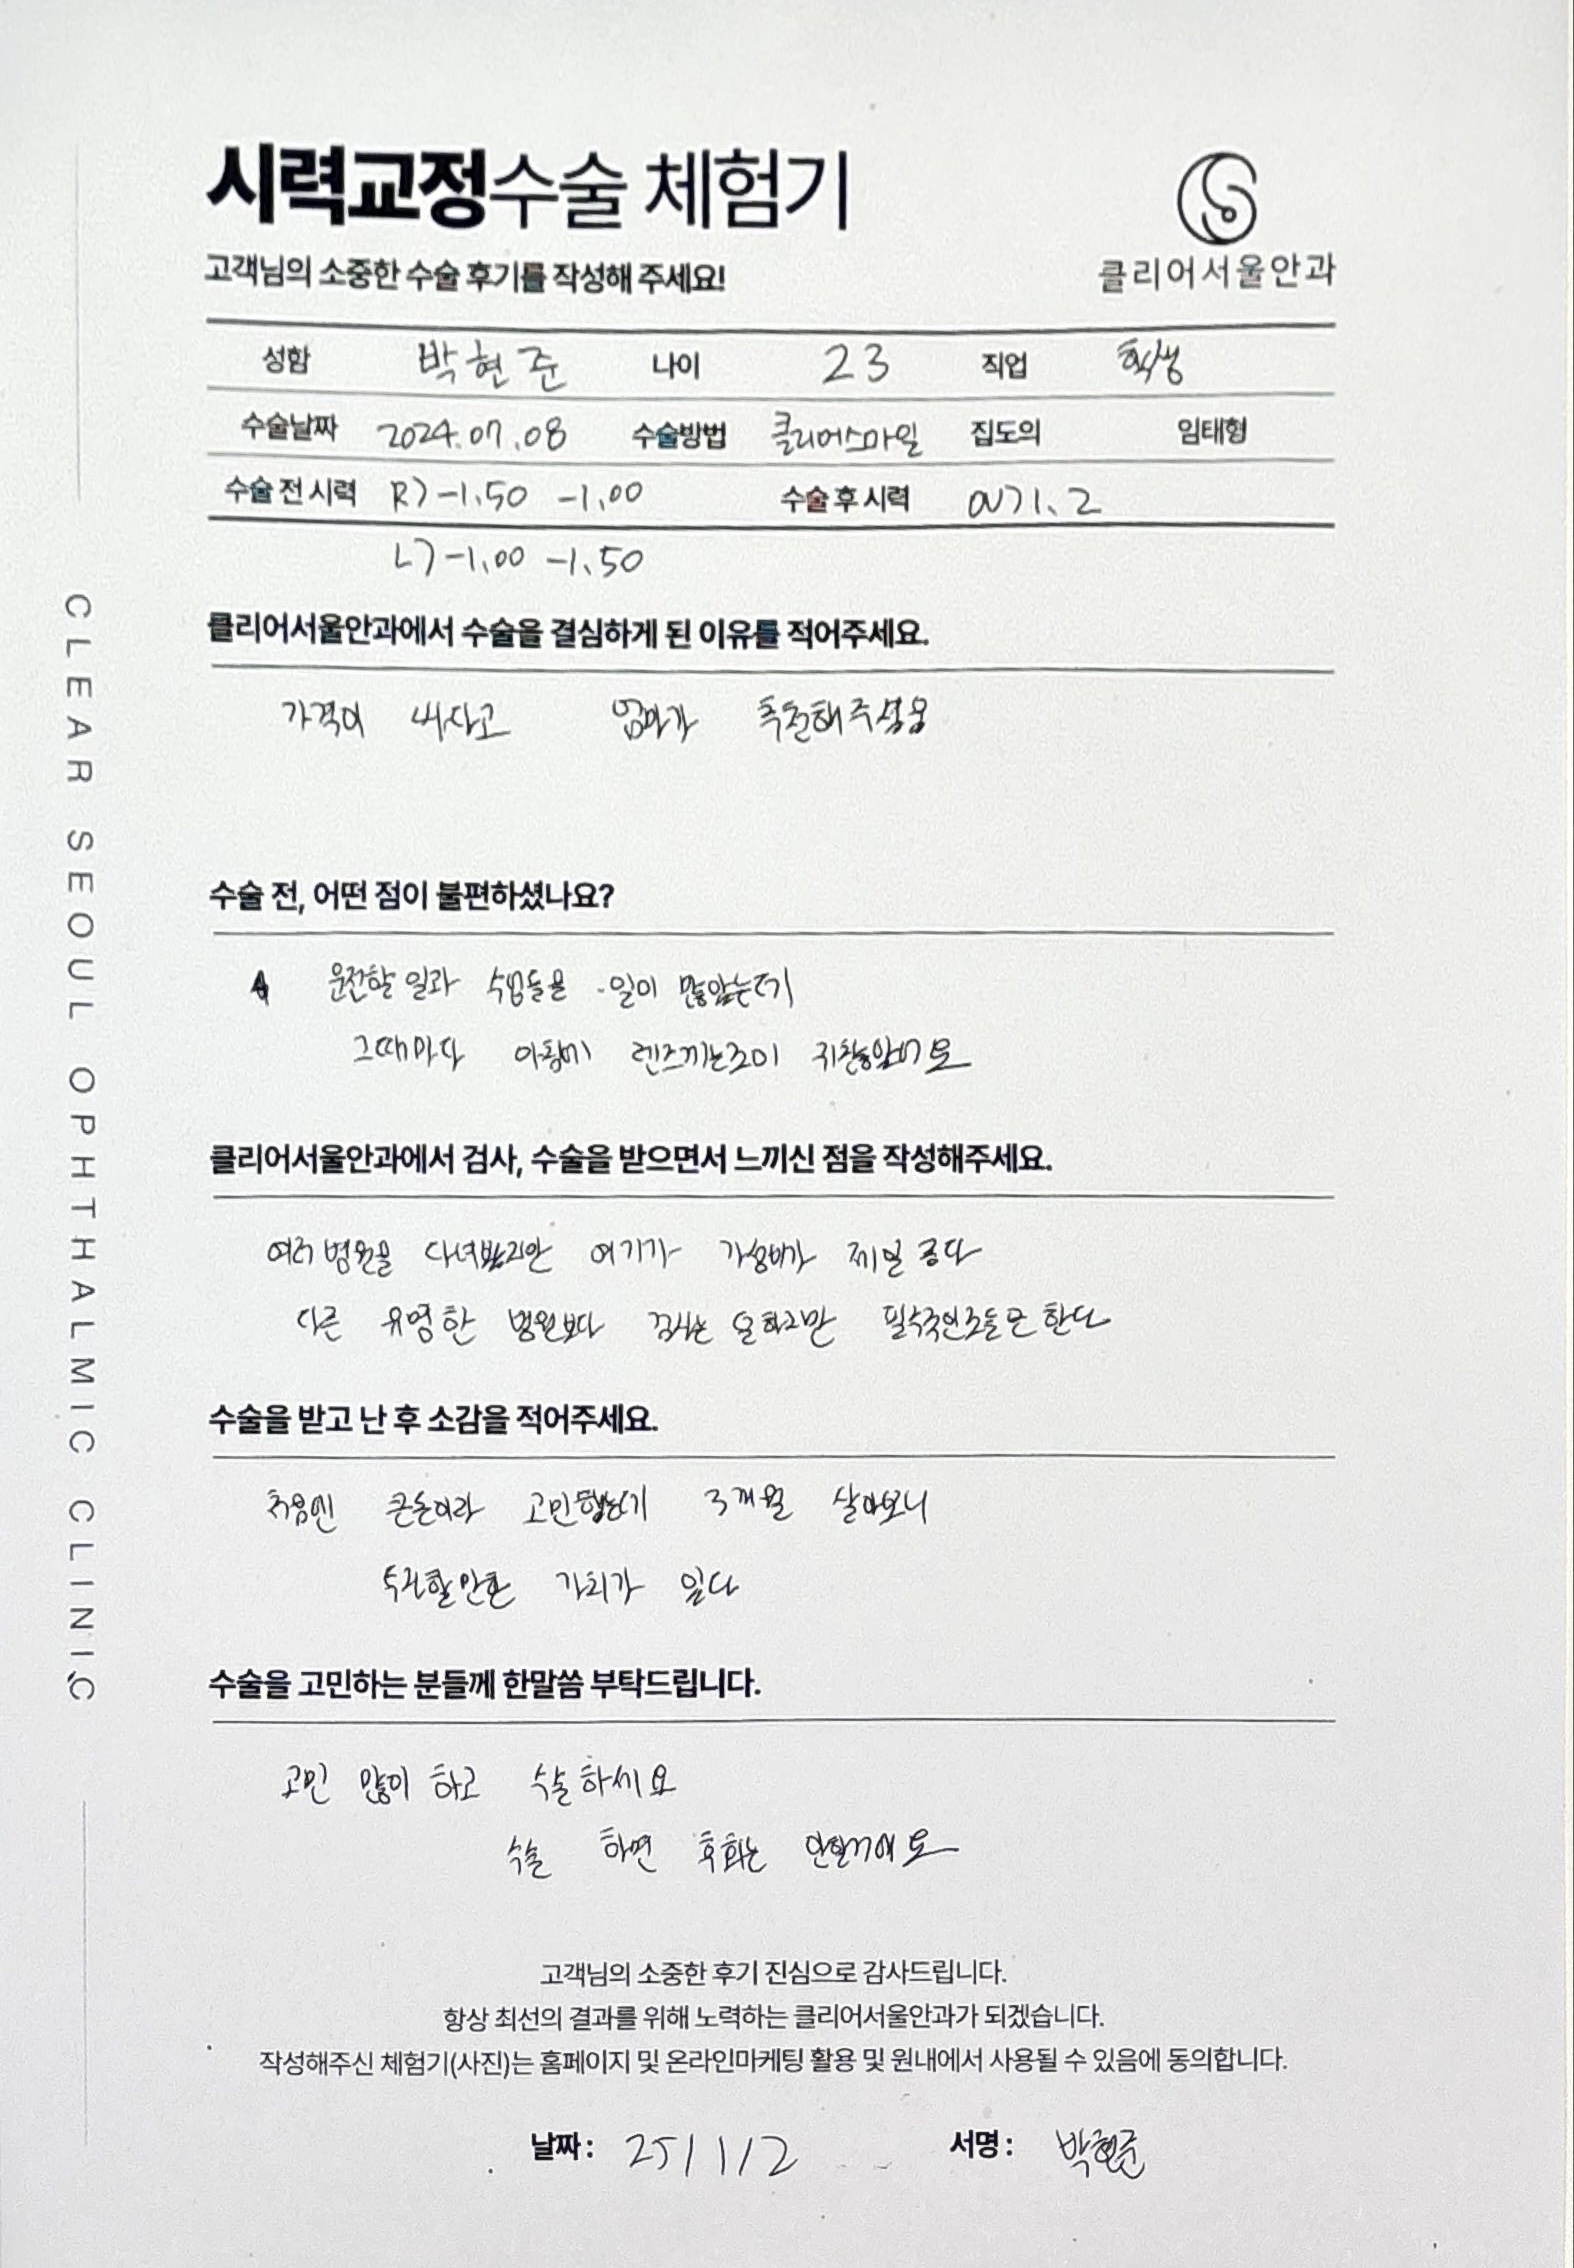 시력교정수술 체험기
고객님의 소중한 수술 후기를 작성해 주세요!
클리어서울안과
성함 박현준 나이 23 직업 학생
수술날짜 2024.07.08 수술방법 클리어스마일 집도의 임태형
수술 전 시력 R) -1.50 -1.00 수술 후 시력 OU) 1.2
L) -1.00 -1.50
클리어서울안과에서 수술을 결심하게 된 이유를 적어주세요.
가격이 싸다고 엄마가 추천해주셨음
수술 전, 어떤 점이 불편하셨나요?
운전할 일과 수업들을 일이 많았는데
그때마다 아침에 렌즈끼는것이 귀찮았어요
클리어서울안과에서 검사, 수술을 받으면서 느끼신 점을 작성해주세요.
여러 병원을 다녀봤지만 여기가 가성비가 제일 좋다
다른 유명한 병원보다 검사는 덜 하지만 필수적인것들은 한다
수술을 받고 난 후 소감을 적어주세요.
처음엔 큰돈이라 고민했는데 3개월 살아보니
투자할만한 가치가 있다
수술을 고민하는 분들께 한말씀 부탁드립니다.
고민 많이 하고 수술하세요
수술 하면 후회는 안할거에요
고객님의 소중한 후기 진심으로 감사드립니다.
항상 최선의 결과를 위해 노력하는 클리어서울안과가 되겠습니다.
작성해주신 체험기(사진)는 홈페이지 및 온라인마케팅 활용 및 원내에서 사용될 수 있음에 동의합니다.
날짜 : 25/1/2 서명 : 박현준
CLEAR SEOUL OPHTHALMIC CLINIC